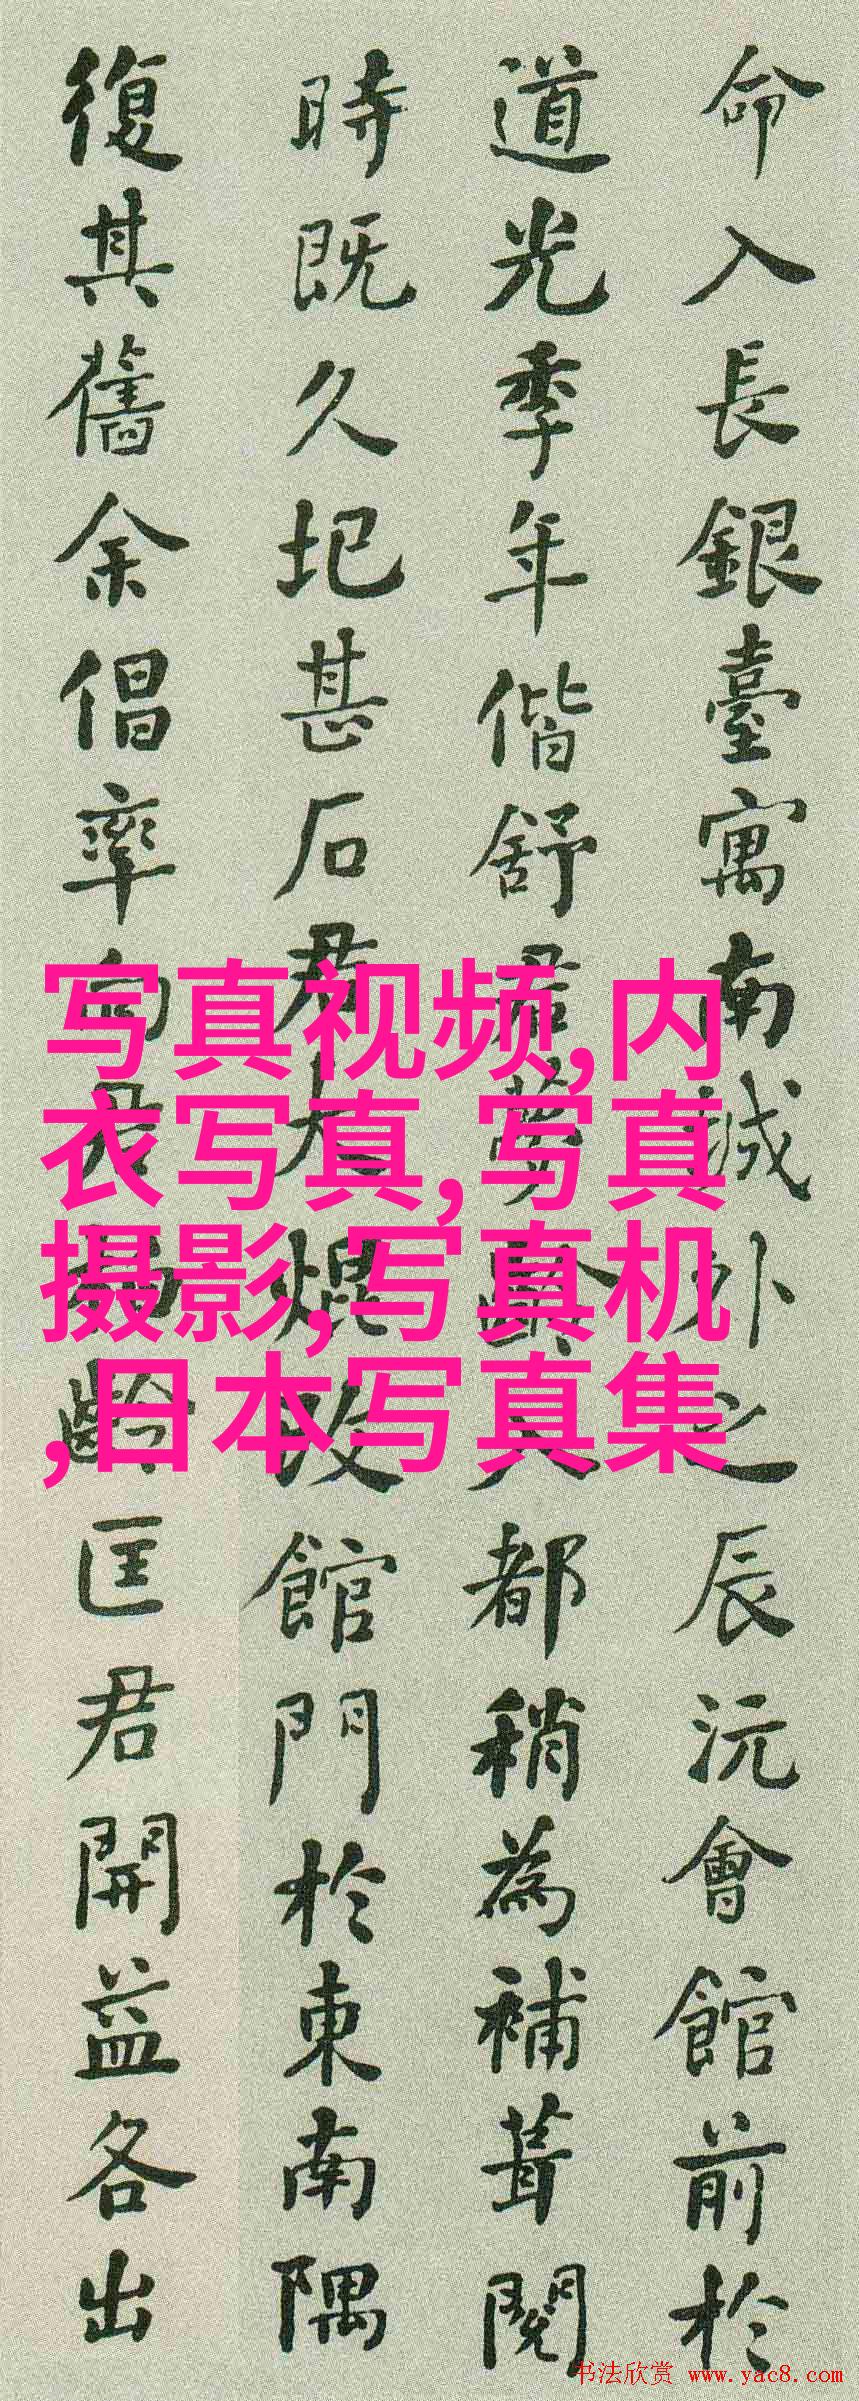 命入長銀臺寓南城外之辰沅會館前於
道光季年偕舒君夢齡入都稍為補葺閱
時既久圮甚石君大焜改館門於東南隅
復其舊余倡率向君齡匡君開益各出
写真视频,内
衣写真,写真
摄影,写真机
,日本写真集
书法欣赏 www.yac8.com